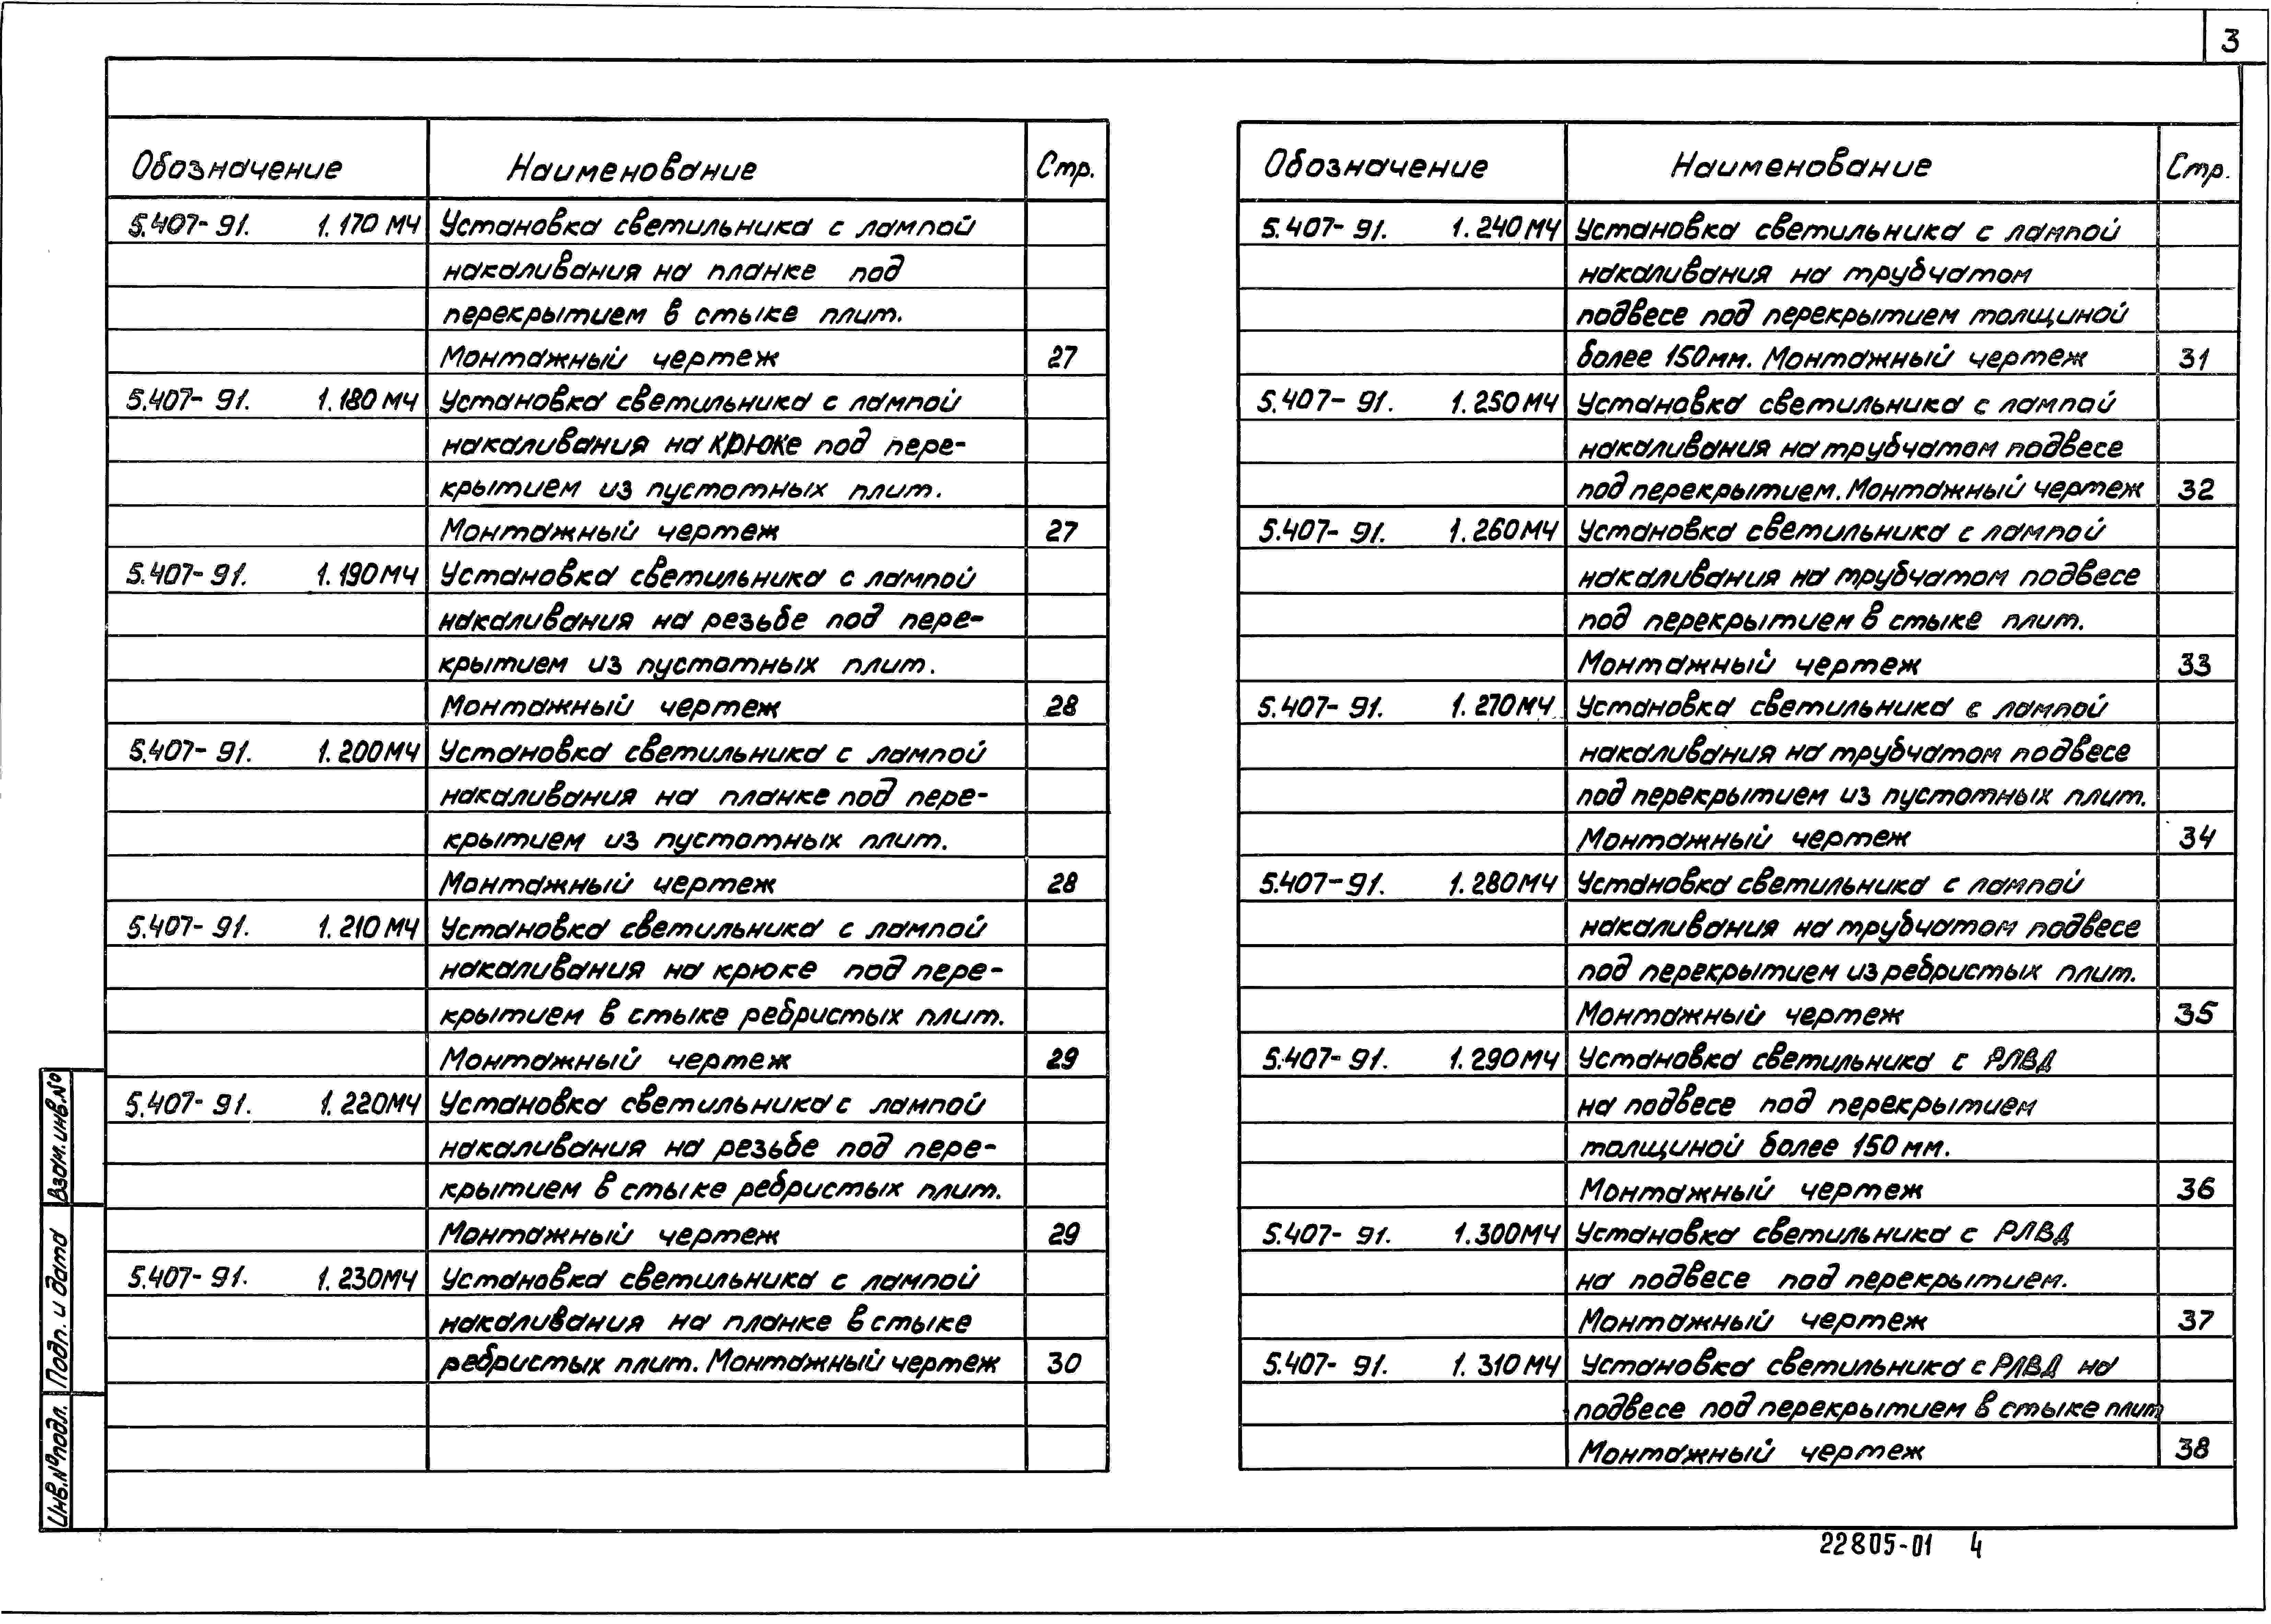 3
Обозначение Наименование Стр.
5.407-91. 1.170МЧ Установка светильника с лампой
накаливания на планке под
перекрытием в стыке плит.
Монтажный чертеж 27
5.407-91. 1.180МЧ Установка светильника с лампой
накаливания на крюке под пере-
крытием из пустотных плит.
Монтажный чертеж 27
5.407-91. 1.190МЧ Установка светильника с лампой
накаливания на резьбе под пере-
крытием из пустотных плит.
Монтажный чертеж 28
5.407-91. 1.200МЧ Установка светильника с лампой
накаливания на планке под пере-
крытием из пустотных плит.
Монтажный чертеж 28
5.407-91. 1.210МЧ Установка светильника с лампой
накаливания на крюке под пере-
крытием в стыке ребристых плит.
Монтажный чертеж 29
5.407-91. 1.220МЧ Установка светильника с лампой
накаливания на резьбе под пере-
крытием в стыке ребристых плит.
Монтажный чертеж 29
5.407-91. 1.230МЧ Установка светильника с лампой
накаливания на планке в стыке
ребристых плит. Монтажный чертеж 30
Обозначение Наименование Стр.
5.407-91. 1.240МЧ Установка светильника с лампой
накаливания на трубчатом
подвесе под перекрытием толщиной
более 150мм. Монтажный чертеж 31
5.407-91. 1.250МЧ Установка светильника с лампой
накаливания на трубчатом подвесе
под перекрытием. Монтажный чертеж 32
5.407-91. 1.260МЧ Установка светильника с лампой
накаливания на трубчатом подвесе
под перекрытием в стыке плит.
Монтажный чертеж 33
5.407-91. 1.270МЧ Установка светильника с лампой
накаливания на трубчатом подвесе
под перекрытием из пустотных плит.
Монтажный чертеж 34
5.407-91. 1.280МЧ Установка светильника с лампой
накаливания на трубчатом подвесе
под перекрытием из ребристых плит.
Монтажный чертеж 35
5.407-91. 1.290МЧ Установка светильника с РЛВД
на подвесе под перекрытием
толщиной более 150 мм.
Монтажный чертеж 36
5.407-91. 1.300МЧ Установка светильника с РЛВД
на подвесе под перекрытием.
Монтажный чертеж 37
5.407-91. 1.310МЧ Установка светильника с РЛВД на
подвесе под перекрытием в стыке плит
Монтажный чертеж 38
Взам.инв.№
Подп. и дата
Инв.№подл.
22805-01 4